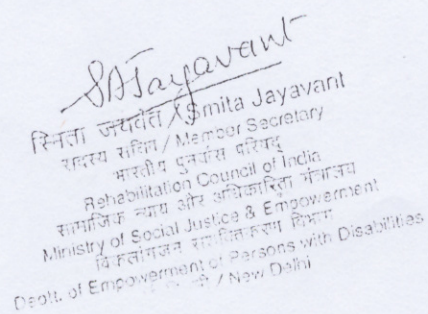 SAJayavant
स्मिता जयवंत / Smita Jayavant
सदस्य सचिव / Member Secretary
भारतीय पुनर्वास परिषद्
Rehabilitation Council of India
सामाजिक न्याय और अधिकारिता मंत्रालय
Ministry of Social Justice & Empowerment
विकलांगजन सशक्तिकरण विभाग
Deptt. of Empowerment of Persons with Disabilities
/ New Delhi